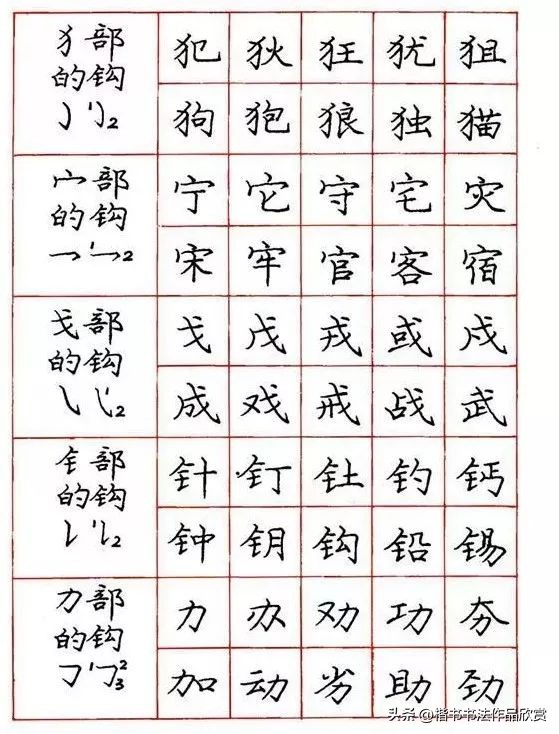 犭部
的钩
犯 狄 狂 犹 狙
狗 狍 狼 独 猫
宀部
的钩
宁 它 守 宅 灾
宋 牢 官 客 宿
戈部
的钩
戈 戊 戎 或 戍
成 戏 戒 战 武
钅部
的钩
针 钉 钍 钓 钙
钟 钥 钩 铅 锡
力部
的钩
力 办 劝 功 夯
加 动 劣 助 劲
头条 @楷书书法作品欣赏